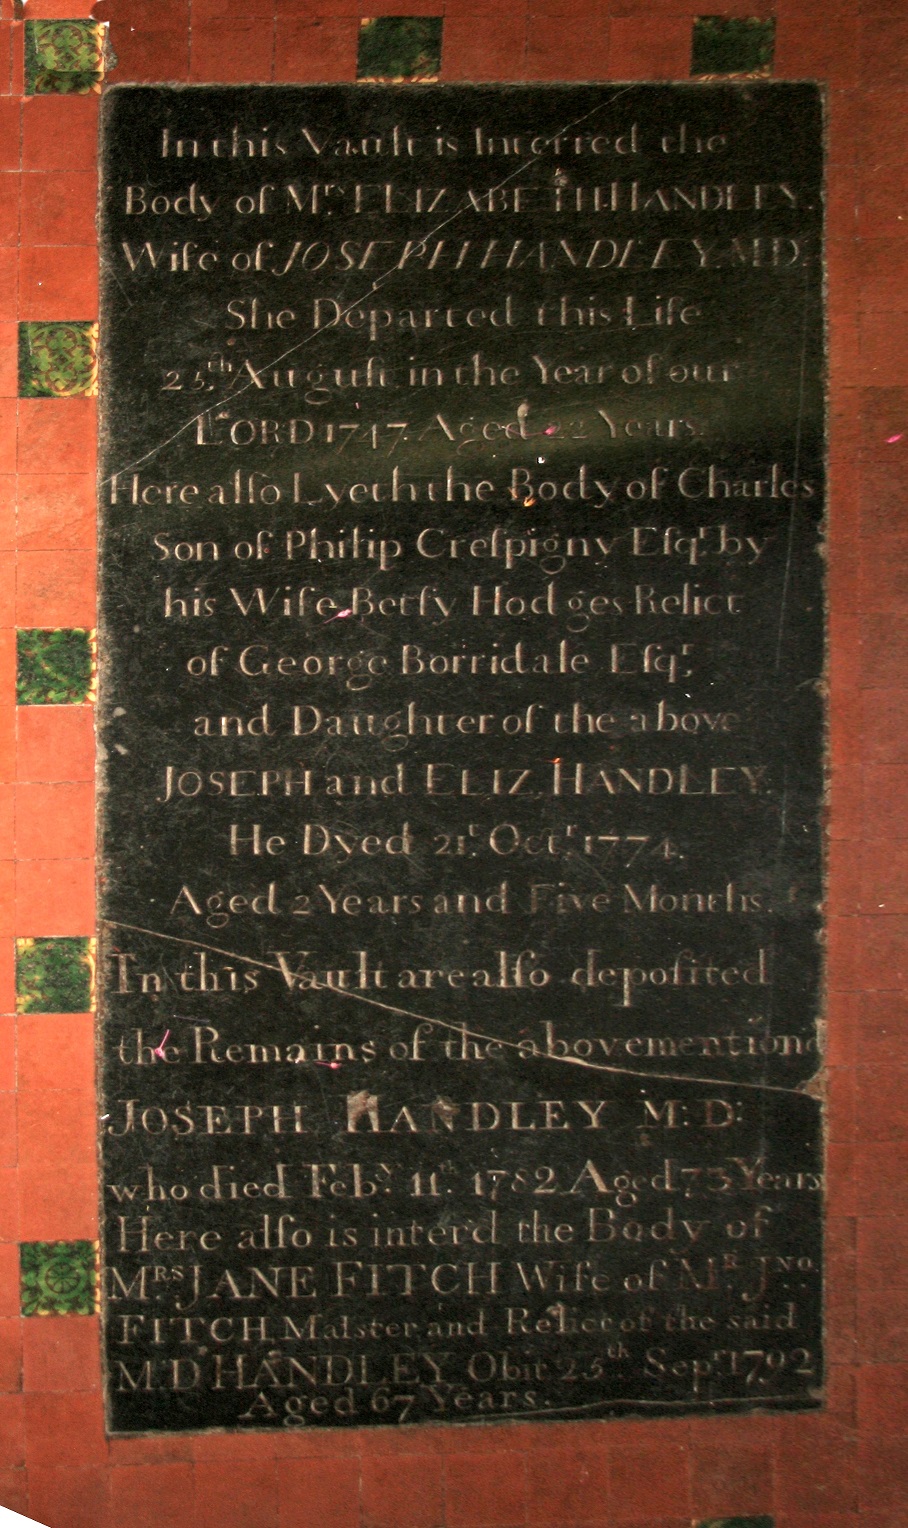 In this Vault is Interred the
Body of Mrs. ELIZABETH HANDLEY.
Wife of JOSEPH HANDLEY. M.D.
She Departed this Life
25.th Auguſt in the Year of our
LORD 1747. Aged 22 Years.
Here alſo Lyeth the Body of Charles
Son of Philip Creſpigny Eſqr. by
his Wife Betſy Hodges Relict
of George Borridale Eſqr.
and Daughter of the above
JOSEPH and ELIZ. HANDLEY.
He Dyed 21t. Octr. 1774.
Aged 2 Years and Five Months.
In this Vault are alſo depoſited
the Remains of the abovementiond
JOSEPH HANDLEY M:D:
who died Feby. 11th. 1782 Aged 73 Years
Here alſo is interd the Body of
MRS. JANE FITCH Wife of MR. JNO.
FITCH Malster and Relict of the said
M.D HANDLEY Obit 25th. Sepr. 1792
Aged 67 Years.